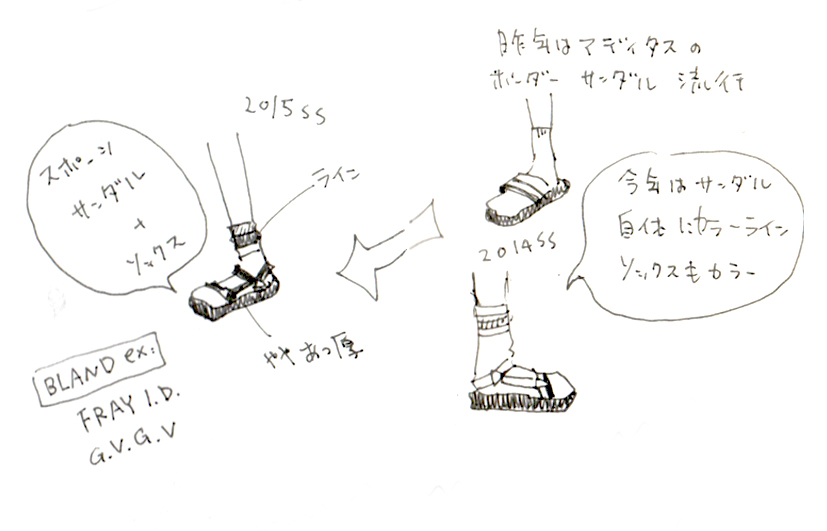 昨年はアディダスの
ボーダー サンダル 流行
2015SS
スポーツ
サンダル
+
ソックス
ライン
今年はサンダル
自体にカラーライン
ソックスもカラー
2014SS
やや あつ厚
BLAND ex:
FRAY I.D.
G.V.G.V